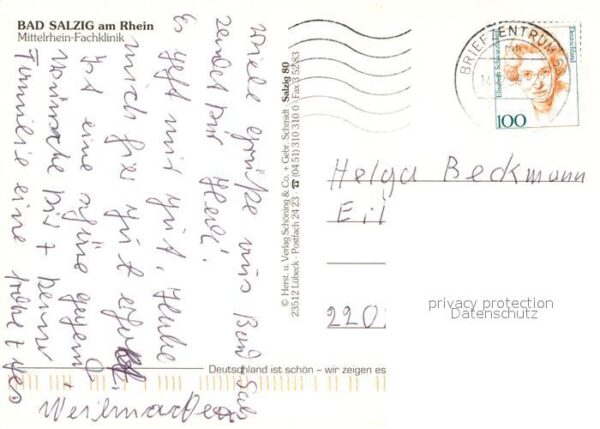 BAD SALZIG am Rhein
Mittelrhein-Fachklinik
Viele Grüße aus Bad Salz
sendet Dir Hedi.
Es geht mir gut. Habe
mich hier gut erholt
Ist eine schöne Gegend
Wünsche Dir + Deiner
Familie eine frohe +
Weihnachten
© Herst. u. Verlag Schöning & Co. + Gebr. Schmidt · Salzig 80
23512 Lübeck · Postfach 24 23 · ☎ (04 51) 310 310 0 · Fax 3 52 83
BRIEFZENTRUM
Deutschland
100
Helga Beckmann
Eil
220
privacy protection
Datenschutz
Deutschland ist schön – wir zeigen es